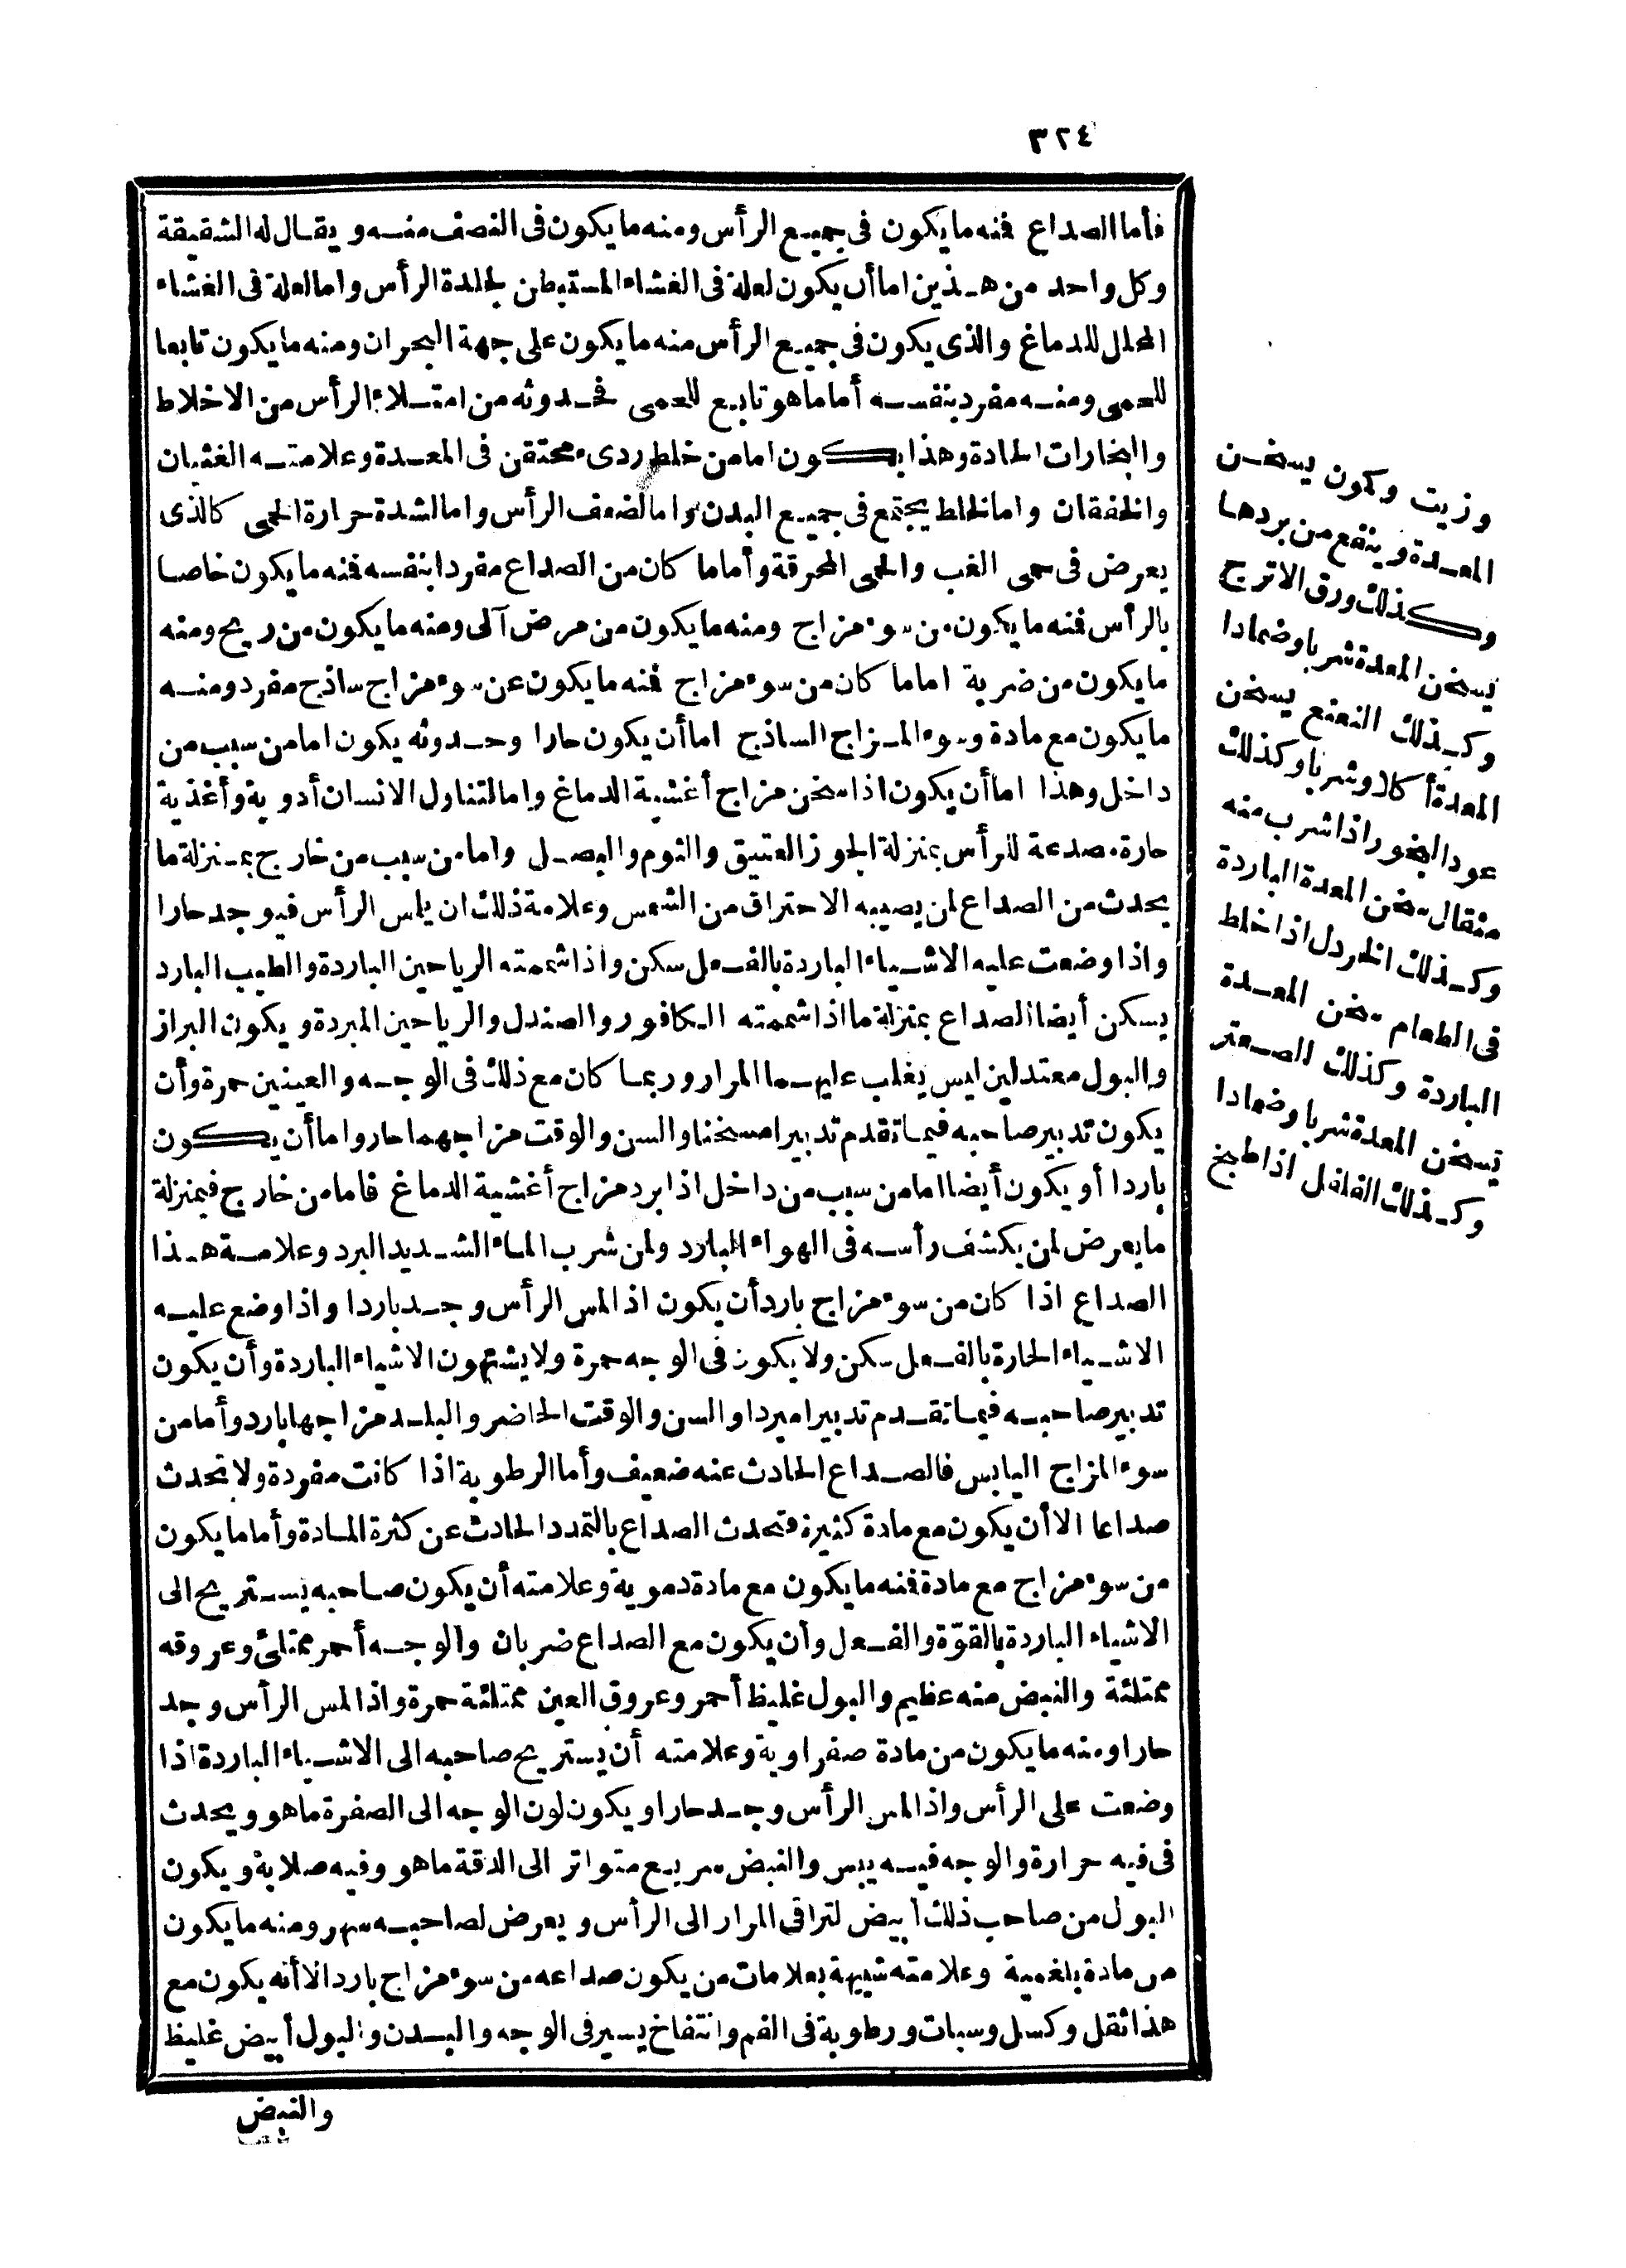 ٣٢٤
فأما الصداع فمنه ما يكون فى جميع الرأس ومنه ما يكون فى النصف منه و يقال له الشقيقة
وكل واحد من هذين اما أن يكون لعلة فى الغشاء المستبطن لجلدة الرأس واما لعلة فى الغشاء
المجلل للدماغ والذى يكون فى جميع الرأس منه ما يكون على جهة البحران ومنه ما يكون تابعا
للحمى ومنه مفرد بنفسه أما ما هو تابع للحمى فحدوثه من امتلاء الرأس من الاخلاط
والبخارات الحادة وهذا يكون اما من خلط ردىء محتقن فى المعدة وعلامته الغثيان
والخفقان واما لخلط يجتمع فى جميع البدن واما لضعف الرأس واما لشدة حرارة الحمى كالذى
يعرض فى حمى الغب والحمى المحرقة وأما ما كان من الصداع مفردا بنفسه فمنه ما يكون خاصا
بالرأس فمنه ما يكون من سوء مزاج ومنه ما يكون من مرض آلى ومنه ما يكون من ريح ومنه
ما يكون من ضربة اما ما كان من سوء مزاج فمنه ما يكون عن سوء مزاج ساذج مفرد ومنه
ما يكون مع مادة وسوء المزاج الساذج اما أن يكون حارا وحدوثه يكون اما من سبب من
داخل وهذا اما أن يكون اذا سخن مزاج أغشية الدماغ واما لتناول الانسان أدوية وأغذية
حارة مصدعة للرأس بمنزلة الجوز العتيق والثوم والبصل واما من سبب من خارج بمنزلة ما
يحدث من الصداع لمن يصيبه الاحتراق من الشمس وعلامة ذلك ان يلمس الرأس فيوجد حارا
واذا وضعت عليه الاشياء الباردة بالفعل سكن واذا شممته الرياحين الباردة والطيب البارد
يسكن أيضا الصداع بمنزلة ما اذا شممته الكافور والصندل والرياحين المبردة ويكون البراز
والبول معتدلين ليس يغلب عليهما المرار وربما كان مع ذلك فى الوجه والعينين حمرة وأن
يكون تدبير صاحبه فيما تقدم تدبيرا مسخنا والسن والوقت مزاجهما حار واما أن يكون
باردا أو يكون أيضا اما من سبب من داخل اذا برد مزاج أغشية الدماغ فاما من خارج فبمنزلة
ما يعرض لمن يكشف رأسه فى الهواء البارد ولمن شرب الماء الشديد البرد وعلامة هذا
الصداع اذا كان من سوء مزاج بارد أن يكون اذا لمس الرأس وجد باردا واذا وضع عليه
الاشياء الحارة بالفعل سكن ولا يكون فى الوجه حمرة ولا يشتهون الاشياء الباردة وأن يكون
تدبير صاحبه فيما تقدم تدبيرا مبردا والسن والوقت الحاضر والبلد مزاجها بارد وأما من
سوء المزاج اليابس فالصداع الحادث عنه ضعيف وأما الرطوبة اذا كانت مفردة ولا تحدث
صداعا الا أن يكون مع مادة كثيرة فتحدث الصداع بالتمدد الحادث عن كثرة المادة وأما ما يكون
من سوء مزاج مع مادة فمنه ما يكون مع مادة دموية وعلامته أن يكون صاحبه يستريح الى
الاشياء الباردة بالقوّة والفعل وأن يكون مع الصداع ضربان والوجه أحمر ممتلئ وعروقه
ممتلئة والنبض منه عظيم والبول غليظ أحمر وعروق العين ممتلئة حمرة واذا لمس الرأس وجد
حارا ومنه ما يكون من مادة صفراوية وعلامته أن يستريح صاحبه الى الاشياء الباردة اذا
وضعت على الرأس واذا لمس الرأس وجد حارا ويكون لون الوجه الى الصفرة ما هو ويحدث
فى فيه حرارة والوجه فيه يبس والنبض سريع متواتر الى الدقة ما هو وفيه صلابة ويكون
البول من صاحب ذلك أبيض لتراقى المرار الى الرأس ويعرض لصاحبه سهر ومنه ما يكون
من مادة بلغمية وعلامته شبيهة بعلامات من يكون صداعه من سوء مزاج بارد الا أنه يكون مع
هذا ثقل وكسل وسبات ورطوبة فى الفم وانتفاخ يسير فى الوجه والبدن والبول أبيض غليظ
والنبض
وزيت وكمون يسخن
المعدة وينفع من بردها
وكذلك ورق الاترج
يسخن المعدة شربا وضمادا
وكذلك النعنع يسخن
المعدة أكلا وشربا وكذلك
عود البخور اذا شرب منه
مثقال سخن المعدة الباردة
وكذلك الخردل اذا خلط
فى الطعام سخن المعدة
الباردة وكذلك الصعتر
تسخن المعدة شربا وضمادا
وكذلك الفلفل اذا طبخ